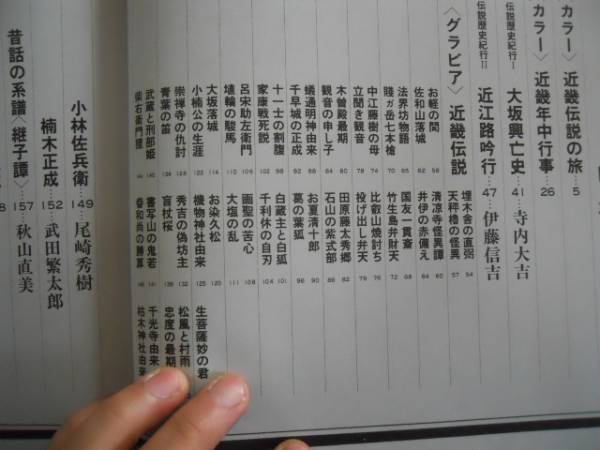 カラー〉近畿伝説の旅…5
カラー〉近畿年中行事…26
伝説歴史紀行Ⅰ 大坂興亡史…41…寺内大吉
伝説歴史紀行Ⅱ 近江路吟行…47…伊藤信吉
〈グラビア〉近畿伝説
お軽の間
佐和山落城 58
法界坊物語 65
賤ガ岳七本槍 70
中江藤樹の母 74
立聞き観音 78
木曽殿最期 80
観音の申し子 84
蟻通明神由来 88
千早城の正成
十一士の割腹 98
家康戦死説 102
呂宋助左衛門 106
埴輪の駿馬 110
大坂落城 114
小楠公の生涯 122
崇禅寺の仇討 126
青葉の笛
武蔵と刑部姫 140
柴右衛門狸
埋木舎の直弼 54
天秤櫓の怪異 57
清涼寺怪異譚 60
井伊の赤備え 64
国友一貫斎 68
竹生島弁財天 72
比叡山焼討ち 76
投げ出し弁天 79
田原藤太秀郷 82
石山の紫式部 86
お夏清十郎 90
葛の葉狐 96
白蔵主と白狐 101
千利休の自刃 104
画聖の苦心 108
大塩の乱 111
お染久松 120
機物神社由来 125
秀吉の偽坊主 132
盲杖桜 139
書写山の鬼若 141
和尚の勝算
生菩薩妙の君
松風と村雨
忠度の最期
千光寺由来
枯木神社由来
小林佐兵衛…149…尾崎秀樹
楠木正成…152…武田繁太郎
昔話の系譜〈継子譚〉…157…秋山直美